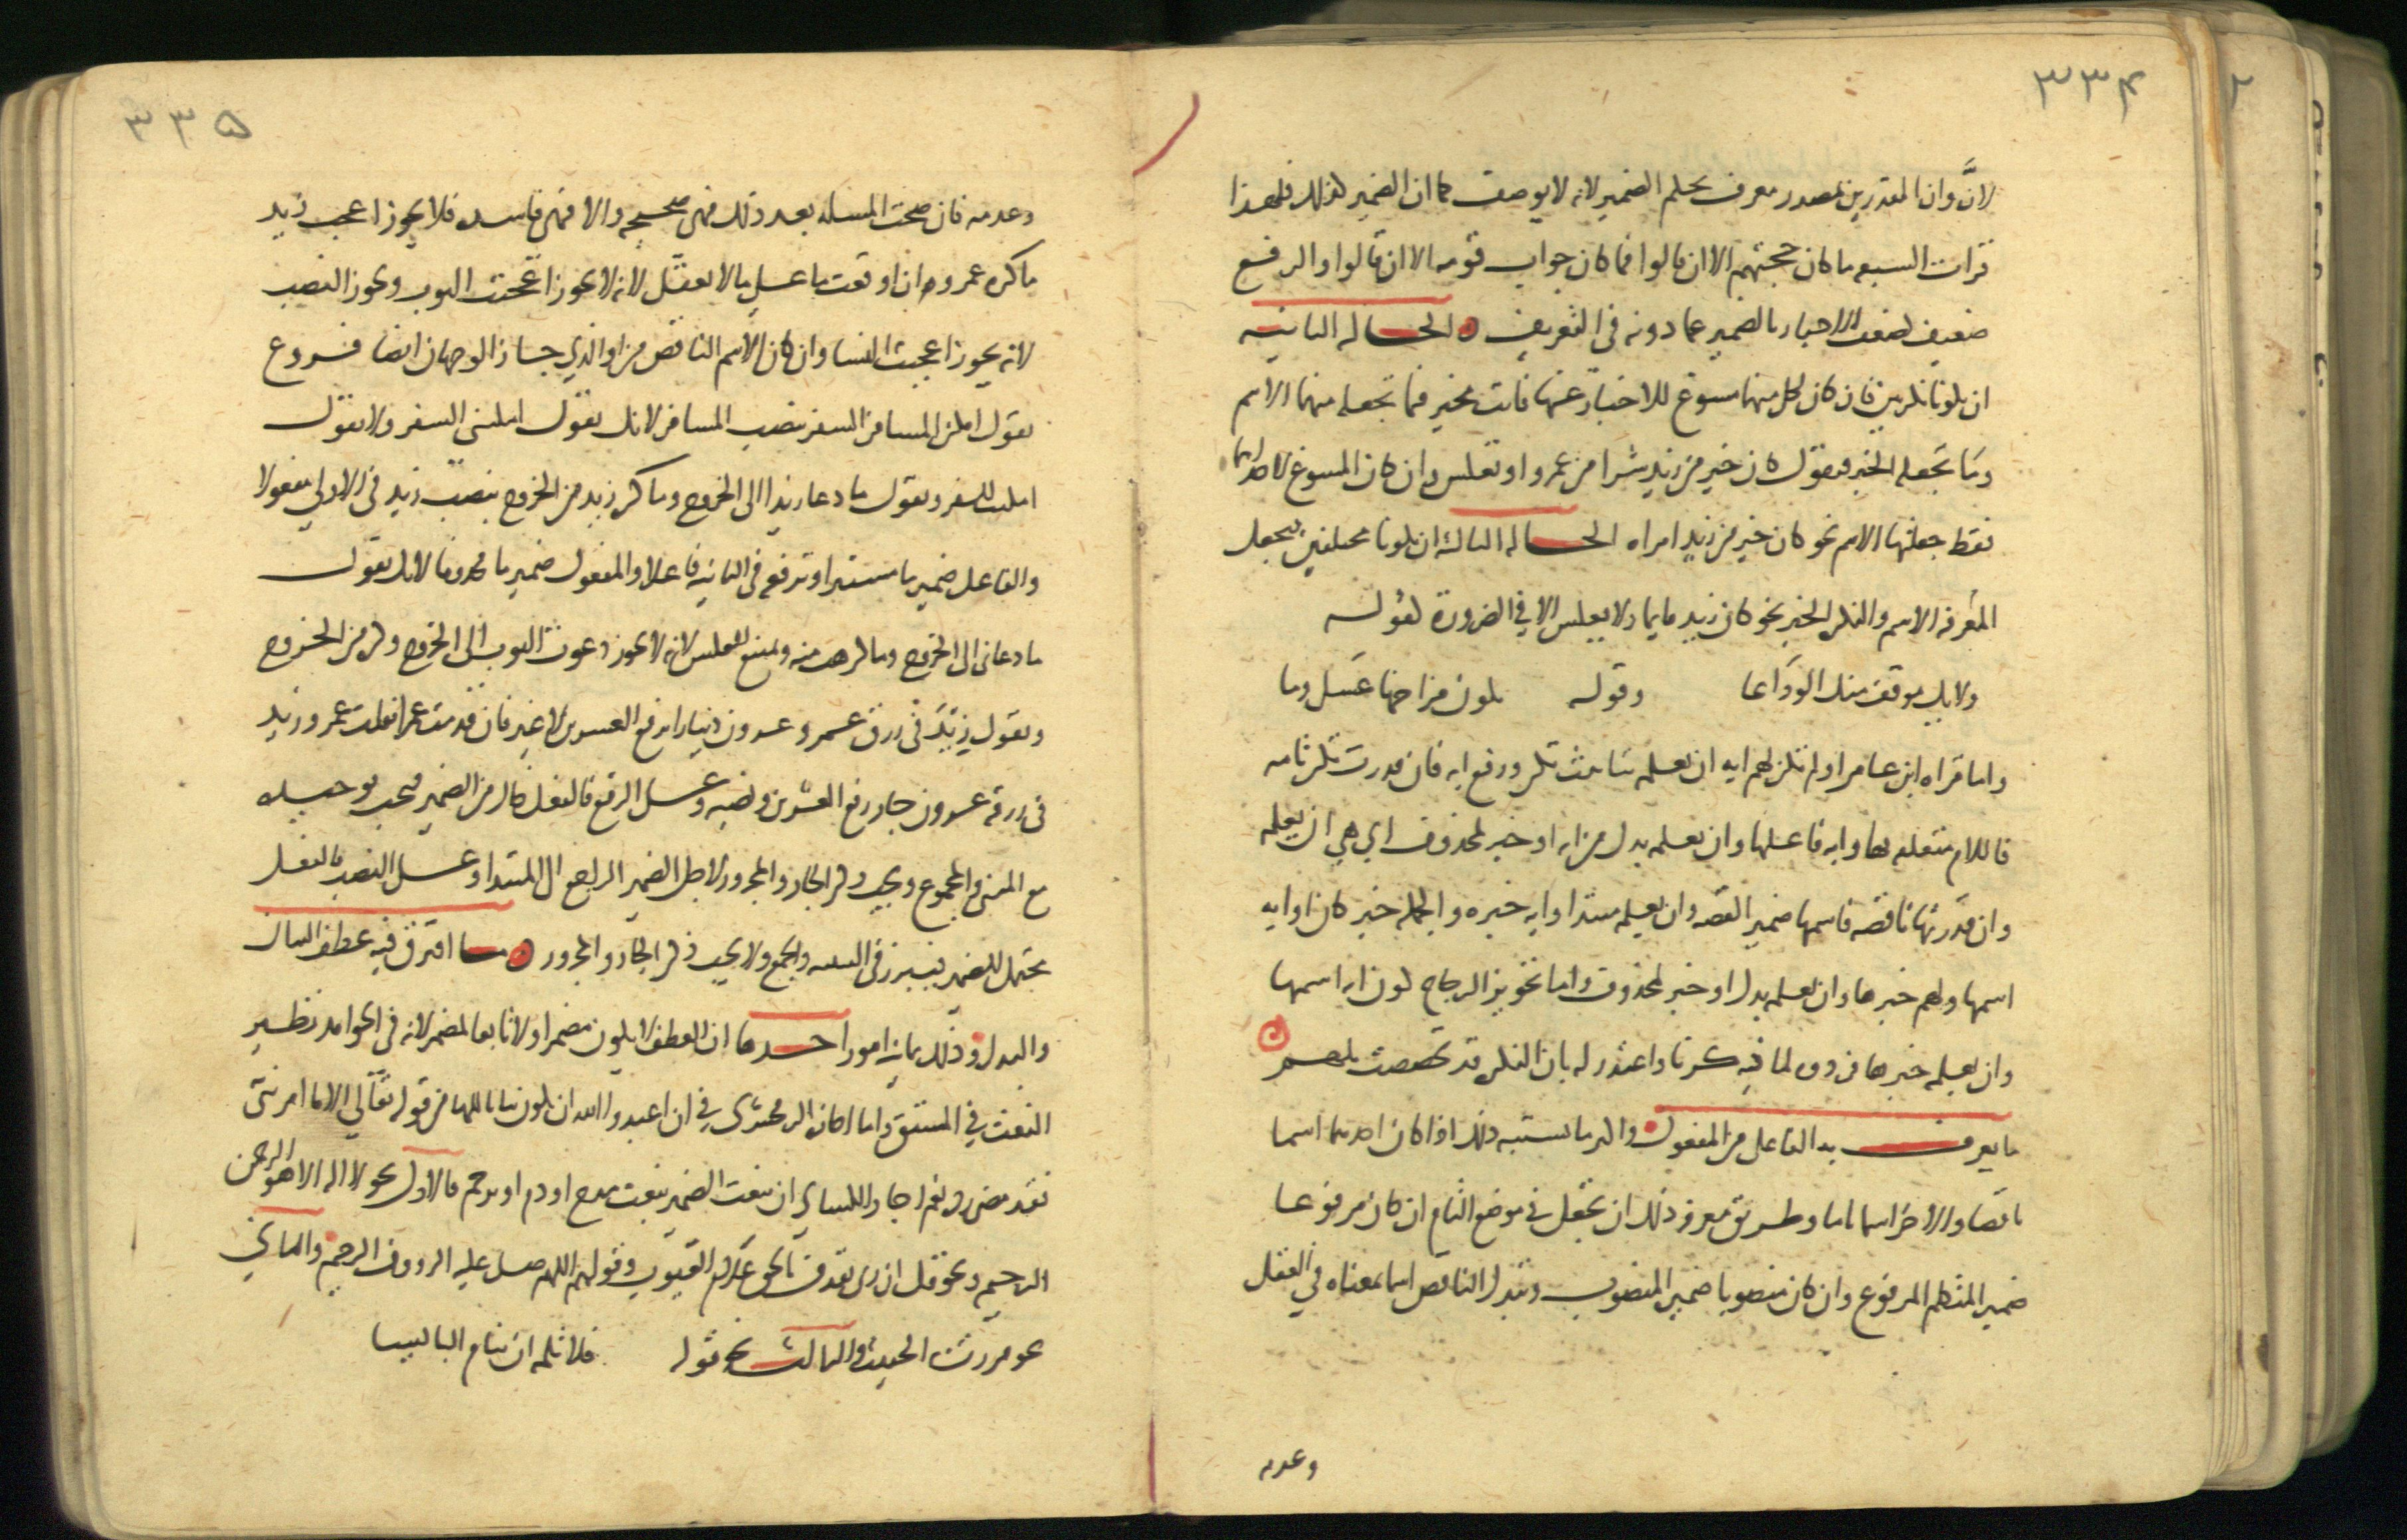 ٣٣٤
لانَّ وان المقدرين بمصدر معرف بحكم الضمير لانه لا يوصف كما ان الضمير كذلك فلهذا
قرات السبعه ما كان حجتهم الا ان قالوا فما كان جواب قومه الا ان قالوا والرفع
ضعيف لضعف الاخبار بالضمير عما دونه في التعريف الحاله الثانيه
ان يكونا نكرتين فان كان لكل منهما مسوغ للاخبار عنها فانت مخير فيما تجعله منهما الاسم
وما تجعله الخبر فتقول كان خير من زيد شرا من عمرو او تعكس وان كان المسوغ لاحداهما
فقط جعلتها الاسم نحو كان خير من زيد امراه الحاله الثالثه ان يكونا مختلفين فتجعل
المعرفه الاسم والنكره الخبر نحو كان زيد قايما ولا يعكس الا في الضرورة كقوله
ولا يك موقف منك الوداعا وقوله يكون مزاجها عسل وما
واما قراه ابن عامر اولم تكن لهم ايه ان يعلمه بتانيث تكن ورفع ايه فان قدرت تكن تامه
فاللام متعلقه بها وايه فاعلها وان يعلمه بدل من ايه او خبر لمحذوف اي هي ان يعلمه
وان قدرتها ناقصه فاسمها ضمير القصه وان يعلمه مبتدا وايه خبره والجمله خبر كان او ايه
اسمها ولهم خبرها وان يعلمه بدل او خبر لمحذوف واما تجويز الزجاج كون ايه اسمها
وان يعلمه خبرها فردوه لما ذكرنا واعتذر له بان النكره قد تخصصت بلهم
ما يعرف به الفاعل من المفعول واكثر ما يشتبه ذلك اذا كان احدهما اسما
ناقصا والاخر اسما تاما وطريق معرفه ذلك ان تجعل في موضع التام ان كان مرفوعا
ضمير المتكلم المرفوع وان كان منصوبا ضميره المنصوب وتبدل الناقص اسما بمعناه في العقل
وعدمه
٣٣٥
وعدمه فان صحت المسله بعد ذلك فهي صحيحه والا فهي فاسده فلا يجوز اعجب زيد
ما كره عمرو ان اوقعت ما على ما لا يعقل لانه لا يجوز اعجبت الثوب ويجوز النصب
لانه يجوز اعجبت النسا وان كان الاسم الناقص من او الذي جاز الوجهان ايضا فروع
تقول امكن المسافر السفر بنصب المسافر لانك تقول امكنني السفر ولا تقول
امكنت السفر وتقول ما دعا زيدا الى الخروج وما كره زيد من الخروج بنصب زيد في الاولي مفعولا
والفاعل ضمير ما مستترا وترفعه في الثانيه فاعلا والمفعول ضمير ما محذوفا لانك تقول
ما دعاني الى الخروج وما كرهت منه ويمتنع العكس لانه لا يجوز دعوت الثوب الى الخروج وكره من الخروج
وتقول زيد في رزق عمرو عشرون دينارا برفع العشرين لا غير فان قدمت عمرا فقلت عمرو زيد
في رزقه عشرون جاز رفع العشرين ونصبه وعلى الرفع فالفعل خال من الضمير فيجب توحيده
مع المثنى والمجموع ويجب ذكر الجار والمجرور لاجل الضمير الراجع الى المبتدا وعلى النصب فالفعل
متحمل للضمير فيبرز في التثنيه والجمع ولا يجب ذكر الجار والمجرور ما افترق فيه عطف البيان
والبدل وذلك ثمانية امور احدها ان العطف لا يكون مضمرا ولا تابعا لمضمر لانه في الجوامد نظير
النعت في المشتق واما اجازة الزمخشري في ان اعبدوا الله ان يكون بيانا للها من قوله تعالى الا ما امرتني
فقد مضى رده نعم اجاز الكسائي ان ينعت الضمير بنعت مدح او ذم او ترحم فالاول نحو لا اله الا هو الرحمن
الرحيم ونحو قل ان ربي يقذف بالحق علام الغيوب وقولهم اللهم صل عليه الرووف الرحيم والثاني
نحو مررت به الخبيث والثالث نحو قوله فلا تلمه ان ينام البائسا